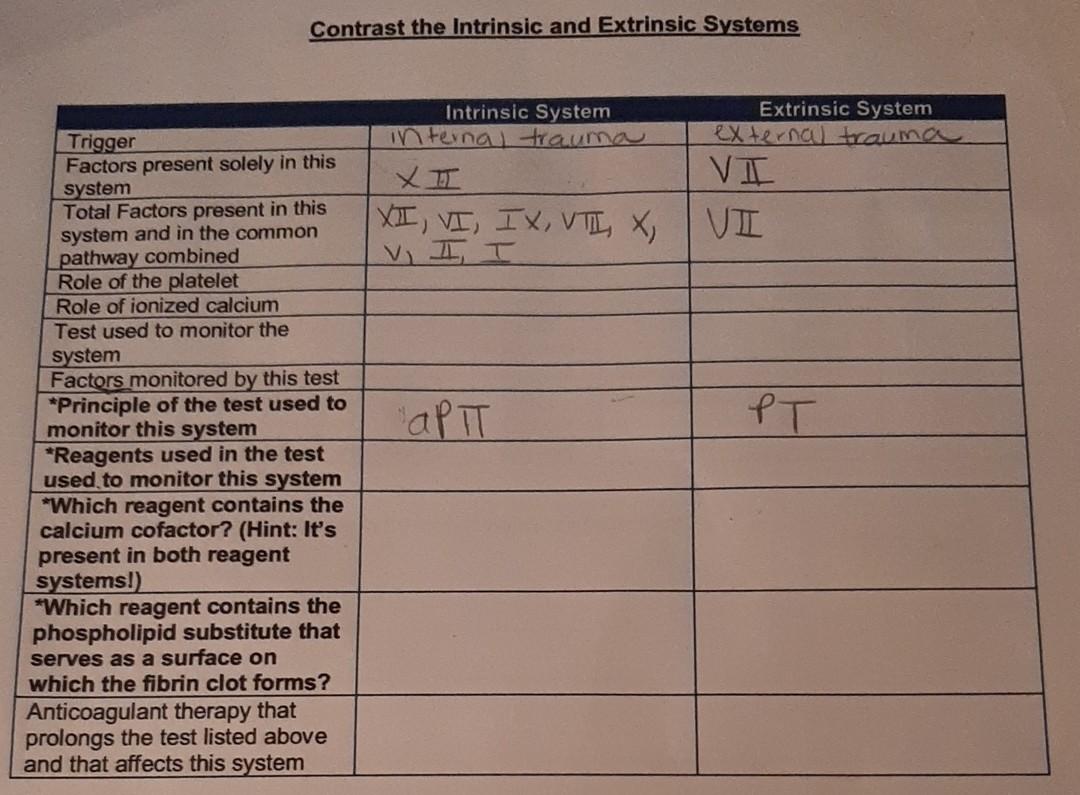 Contrast the Intrinsic and Extrinsic Systems
Intrinsic System Extrinsic System
Trigger internal trauma external trauma
Factors present solely in this
system XII VII
Total Factors present in this XII, VI, IX, VIII, X, VII
system and in the common
pathway combined V, II, I
Role of the platelet
Role of ionized calcium
Test used to monitor the
system
Factors monitored by this test
*Principle of the test used to
monitor this system aPTT PT
*Reagents used in the test
used to monitor this system
*Which reagent contains the
calcium cofactor? (Hint: It's
present in both reagent
systems!)
*Which reagent contains the
phospholipid substitute that
serves as a surface on
which the fibrin clot forms?
Anticoagulant therapy that
prolongs the test listed above
and that affects this system